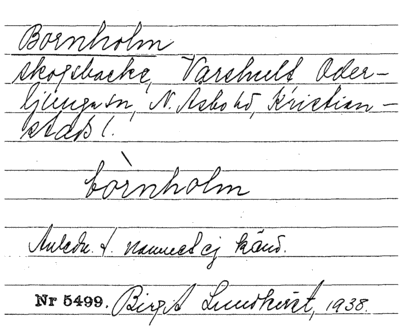 Bornholm
skogsbacke, Varshult Oder-
ljunga sn, N. Åsbo hd, Kristian-
stads l.
bòrnholm
Anledn. t. namnet ej känd.
Nr 5499. Birgit Lundkvist, 1938.